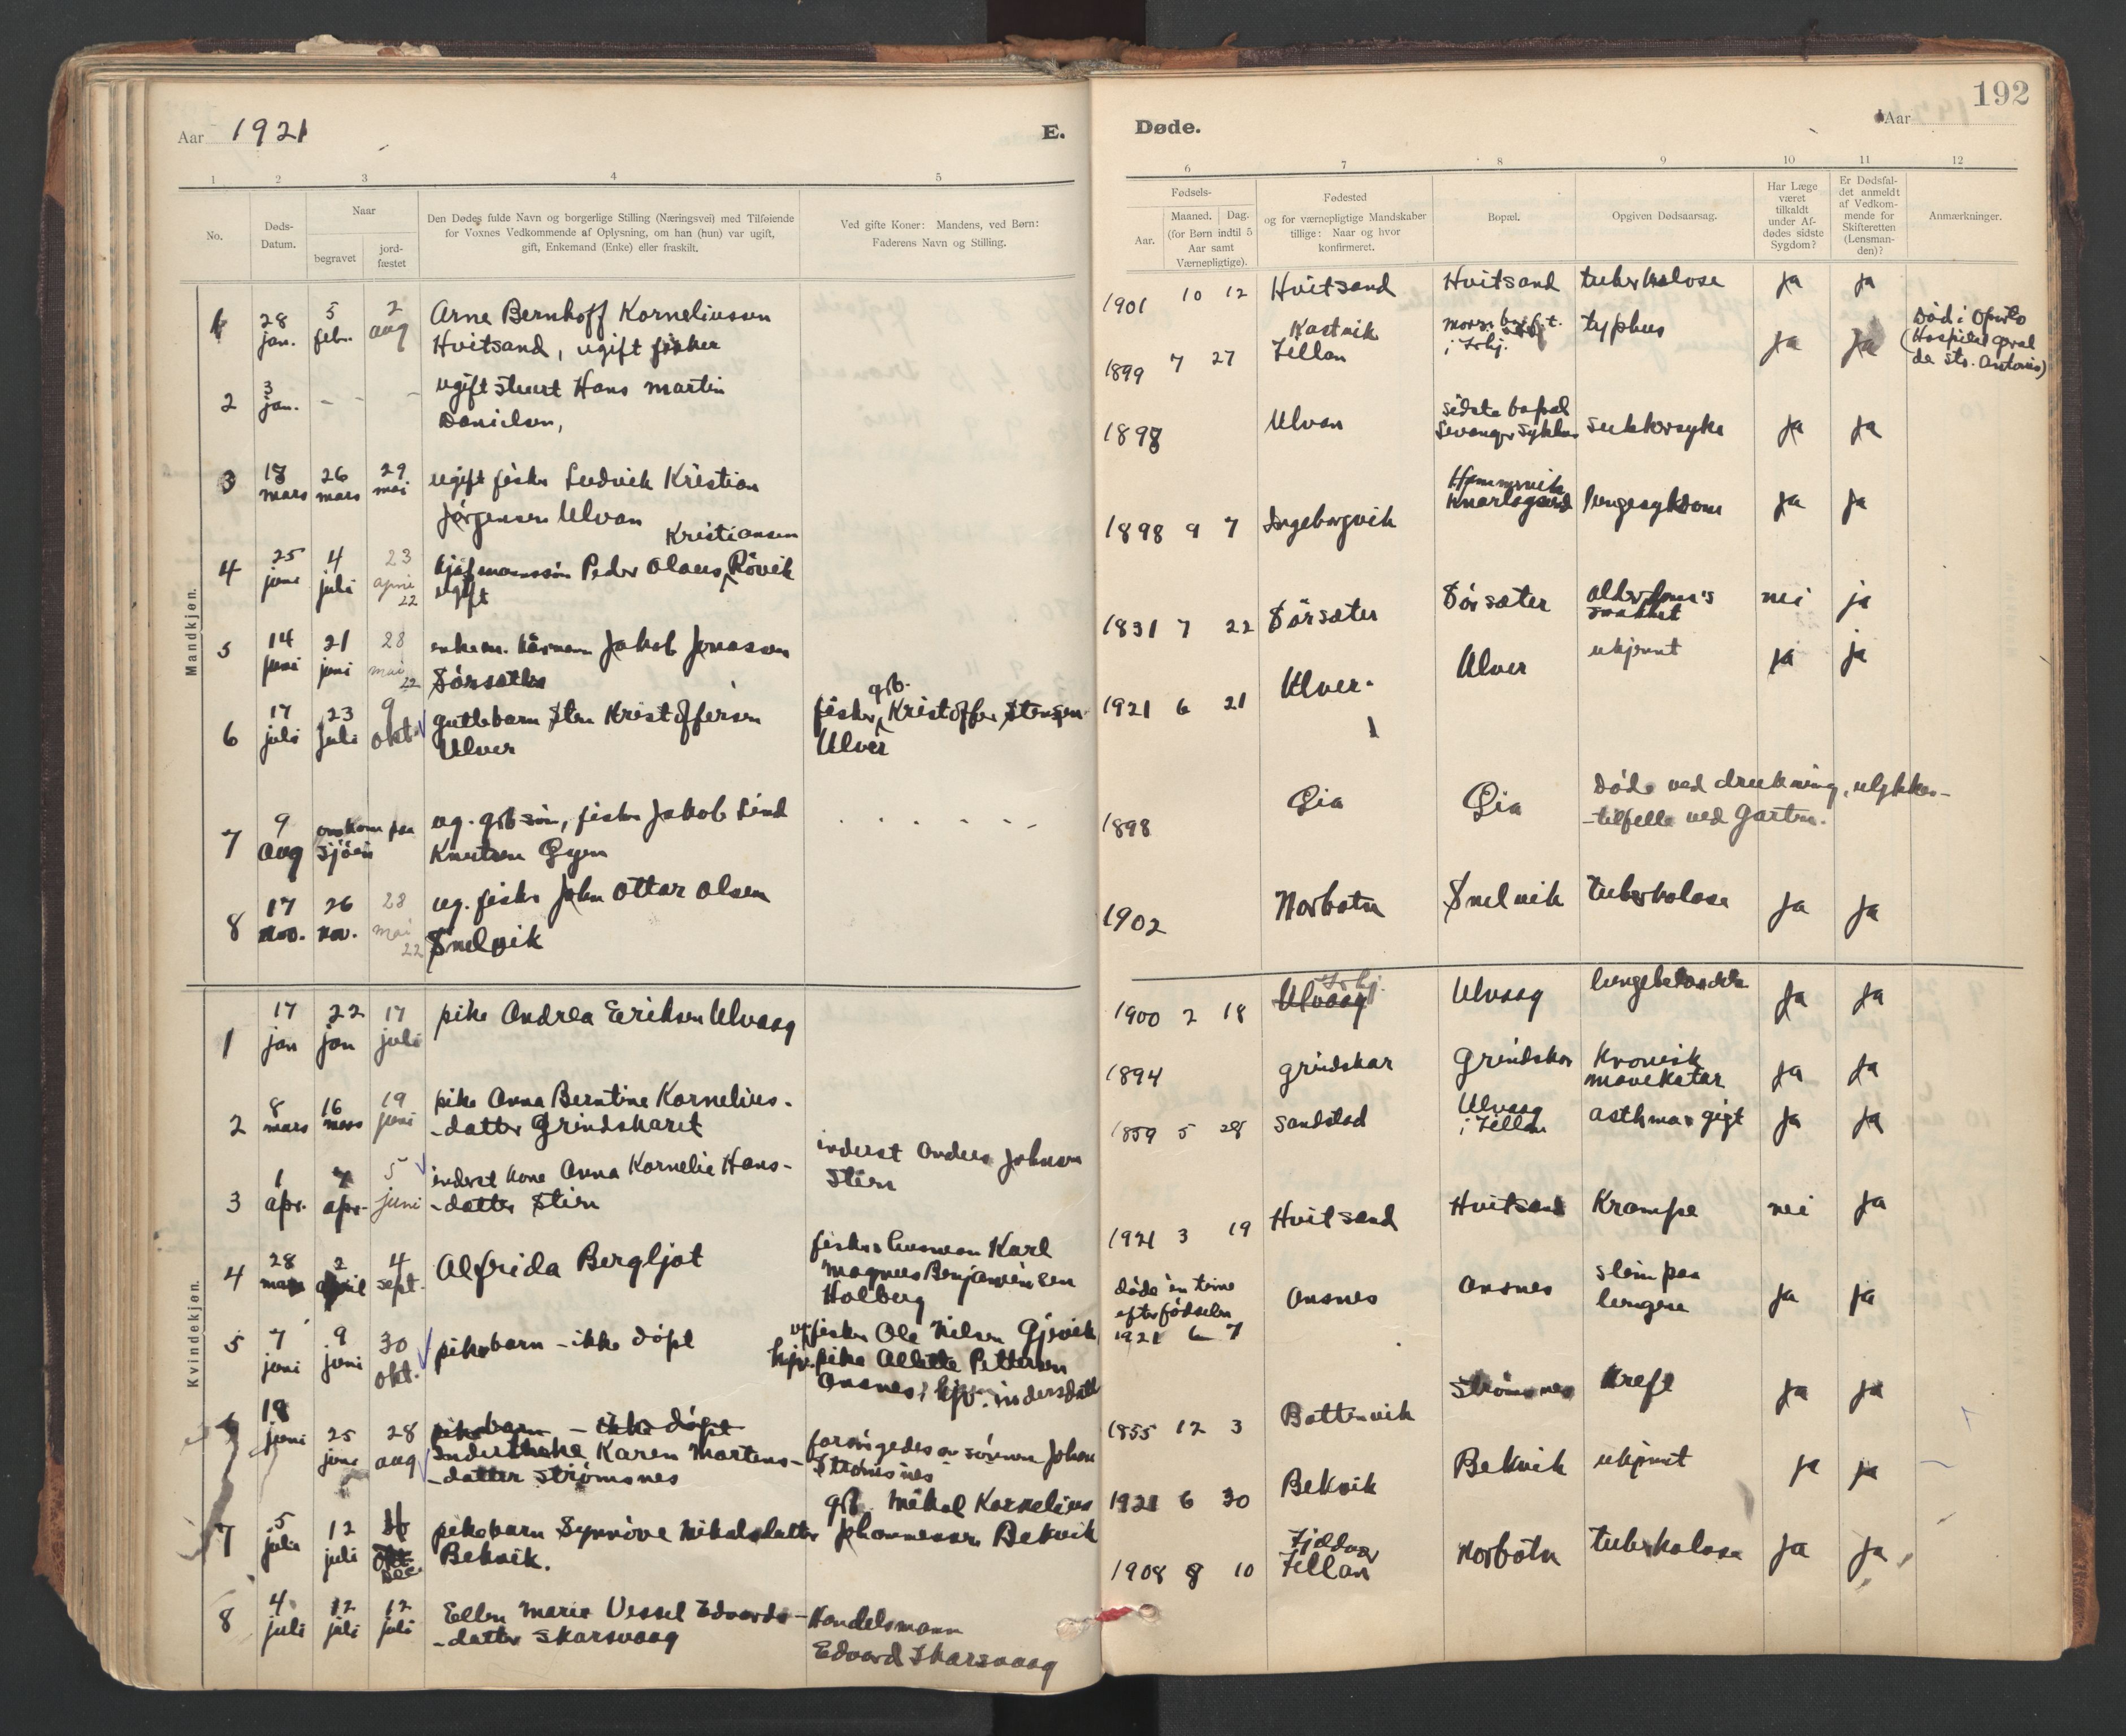 Aar 1921
E.
1 2 3 4 5
No.
Døds-
Datum.
Naar
begravet
jord-
fæstet
Den Dødes fulde Navn og borgerlige Stilling (Næringsvei) med Tilføiende
for Voxnes Vedkommende af Oplysning, om han (hun) var ugift,
gift, Enkemand (Enke) eller fraskilt.
Ved gifte Koner: Mandens, ved Børn:
Faderens Navn og Stilling.
Mandkjøn.
1 28 jan. 5 febr. 2 aug
Arne Bernhoff Korneliussen
Hvitsand, ugift fisker
2 3 jan. - - -
ugift stuert Hans Martin
Danielsen,
3 18 mars 26 mars 29 mai
ugift fisker Ludvik Kristian
Jørgensen Ulvan
4 25 juni 4 juli 23 april 22
Kristiansen
Peder Olaus Røvik
ugift
5 14 juni 21 juni 28 mai 22
enkem. kårmann Jakob Jonasson
Sørsæter
6 17 juli 23 juli 9 okt.
guttebarn Sten Kristoffersen
Ulver
gb.
fisker Kristoffer Stensen
Ulver
7 9 aug omkom paa sjøen
ug. gbsøn, fisker Jakob Lind
Knutsen Gyen
8 17 nov. 26 nov. 28 mai 22
ug. fisker John Ottar Olsen
Snelvik
Kvindekjøn.
1 17 jan 22 jan 17 juli
pike Andrea Eeriksen Ulvaag
2 8 mars 16 mars 19 juni
pike Anna Berntine Kornelius-
-datter Grindskaret
3 1 apr. 7 apr. 5 juni
inderst kone Anna Kornelie Hans-
-datter Stien
inderst Anders Johnsen
Stien
4 28 mars 2 april 4 sept.
Alfrida Bergljot
fisker husmann Karl
Magnus Benjaminsen
Holberg
5 7 juni 9 juni 30 okt.
pikebarn - ikke døpt
ug. fisker Ole Nilsen Gjøvik
hjv. pike Alette Pettersen
Ansnes, hjv. indersdatt
6 18 juni 25 juni 28 aug
pikebarn - ikke døpt
Inderstenke Karen Martens-
-datter Strømsnes
forsørgedes av sønnen Johan
Strømsnes
7 5 juli 12 juli okt. Dec
pikebarn Synnøve Mikalsdatter
Bekvik.
gb. Mikal Kornelius
Johannessen Bekvik
8 4 juli 12 juli 12 juli
Ellen Marie Vessel Edvards-
-datter Skarsvaag
Handelsmann
Edvard Skarsvaag
192
Døde.
Aar
6 7 8 9 10 11 12
Fødsels-
Aar.
Maaned. Dag.
(for Børn indtil 5
Aar samt
Værnepligtige).
Fødested
og for værnepligtige Mandskaber
tillige: Naar og hvor
konfirmeret.
Bopæl.
Opgiven Dødsaarsag.
Har Læge
været
tilkaldt
under Af-
dødes sidste
Sygdom?
Er Dødsfal-
det anmeldt
af Vedkom-
mende for
Skifteretten
(Lensman-
den)?
Anmærkninger.
1901 10 12 Hvitsand Hvitsand tuberkulose ja ja
1899 7 27 Kastvik
Fillan
i Frhj. typhus ja ja
Død i
(Hospital
de sto. Antonio)
1898 Ulvan sidste bopæl
Levanger sykehus sukkersyke ja ja
1898 9 7 Ingeborgvik Hammervik
Knarlagsund lungesykdom ja ja
1831 7 22 Sørsæter Sørsæter alderdoms
svakhet nei ja
1921 6 21 Ulver Ulver ukjent ja ja
1898 Gia Gia Døde ved drukning, ulykkes-
-tilfelle ved Garten.
1902 Norbotn Snelvik tuberkolose ja ja
1900 2 18 Ulvaag Frhj. Ulvaag lungebetændelse ja ja
1894 Grindskar Grindskar Kronisk
mavekatar ja ja
1859 5 28 Sandstad Ulvaag
i Fillan asthma & gigt ja ja
1921 3 19 Hvitsand Hvitsand Krampe nei ja
døde en time
efter fødselen
1921 6 7 Ansnes Ansnes slim paa
lungene ja ja
1855 12 3 Battenvik Strømsnes Kreft ja ja
1921 6 30 Bekvik Bekvik ukjent ja ja
1908 8 10 Fjeldvær
Fillan Norbotn tuberkolose ja ja